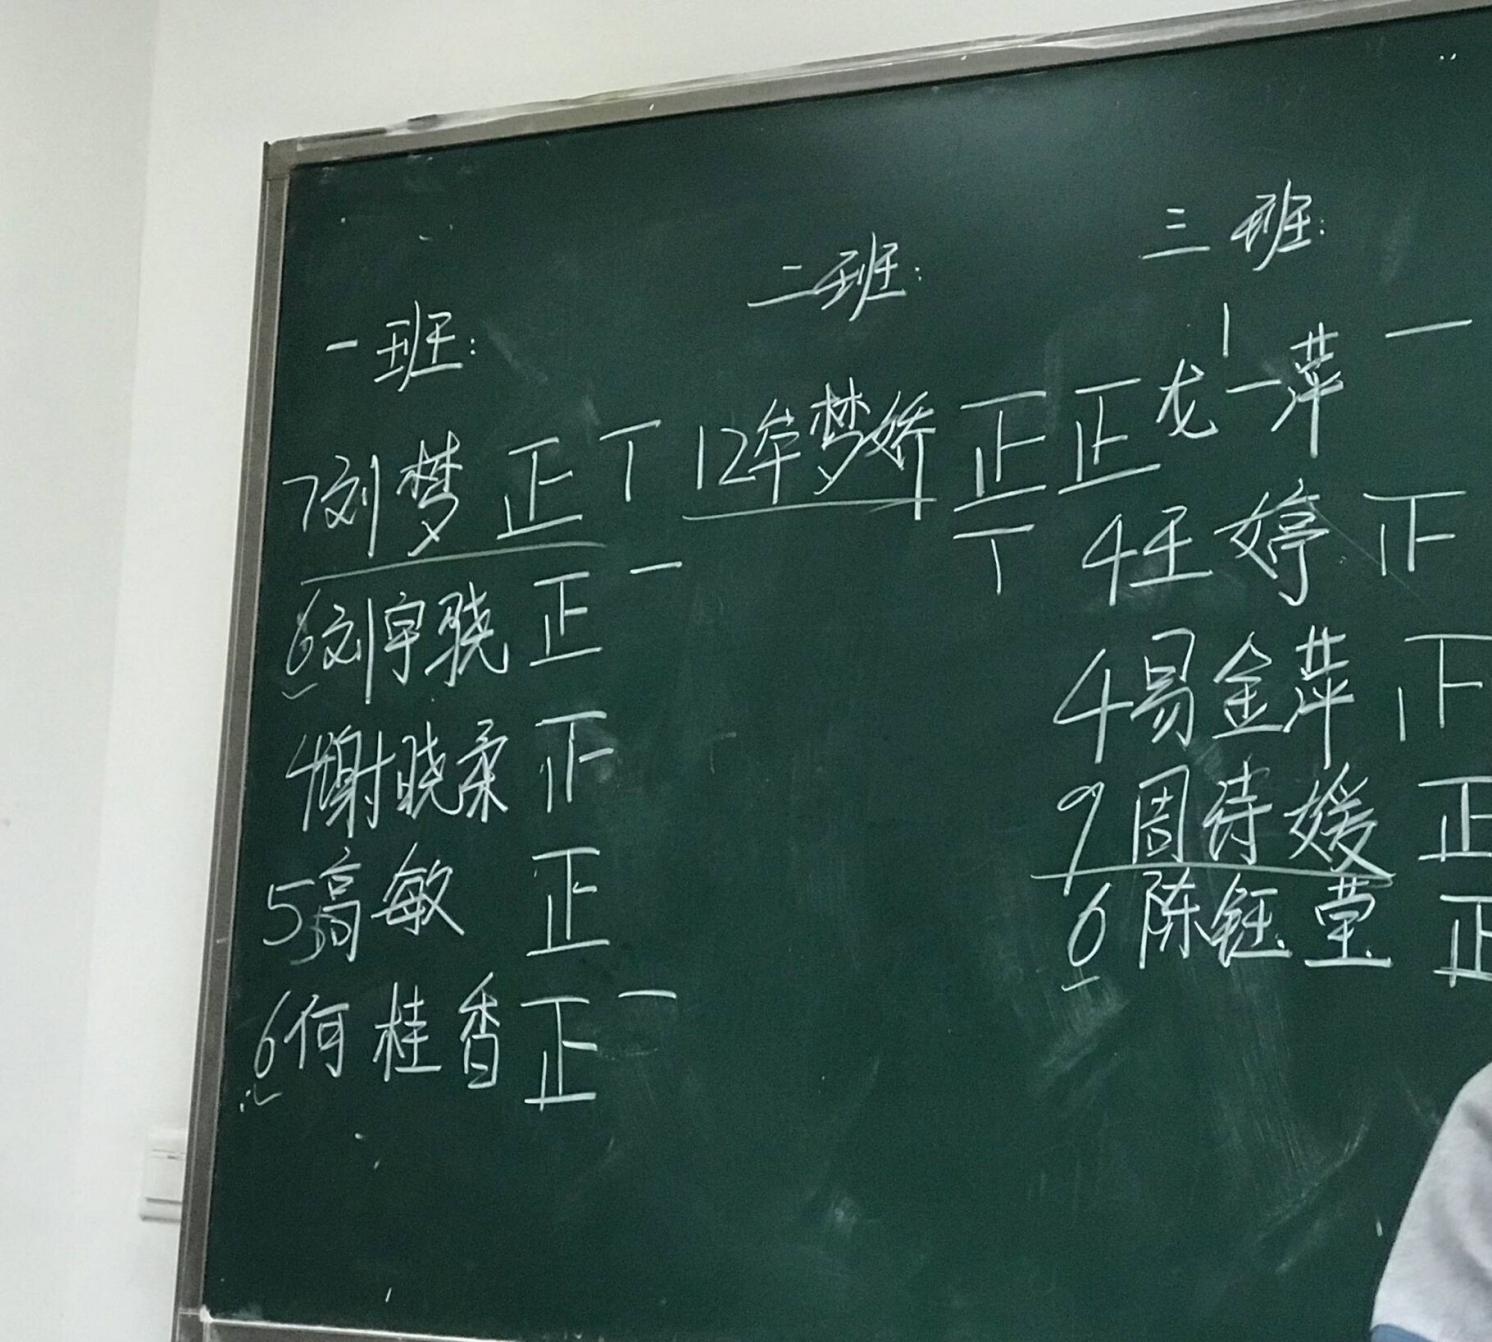 一班:
7刘梦 正丅
6刘宇骁 正一
4谢晓柔 𤴓
5高敏 正
6何桂香 正一
二班:
12牟梦娇 正正
丅
三班:
1
龙一萍 一
4王婷 𤴓
4易金萍 𤴓
9周诗媛 正
6陈钰莹 正